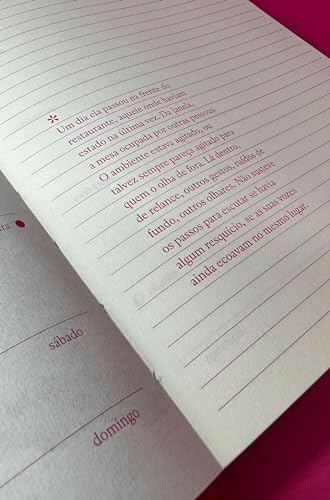 * Um dia ela passou na frente do
restaurante, aquele onde haviam
estado na última vez. Da janela,
a mesa ocupada por outras pessoas.
O ambiente estava agitado, ou
talvez sempre pareça agitado para
quem o olha de fora. Lá dentro,
de relance, outros gestos, ruídos de
fundo, outros olhares. Não susteve
os passos para escutar se havia
algum resquício, se as suas vozes
ainda ecoavam no mesmo lugar.
sábado
domingo